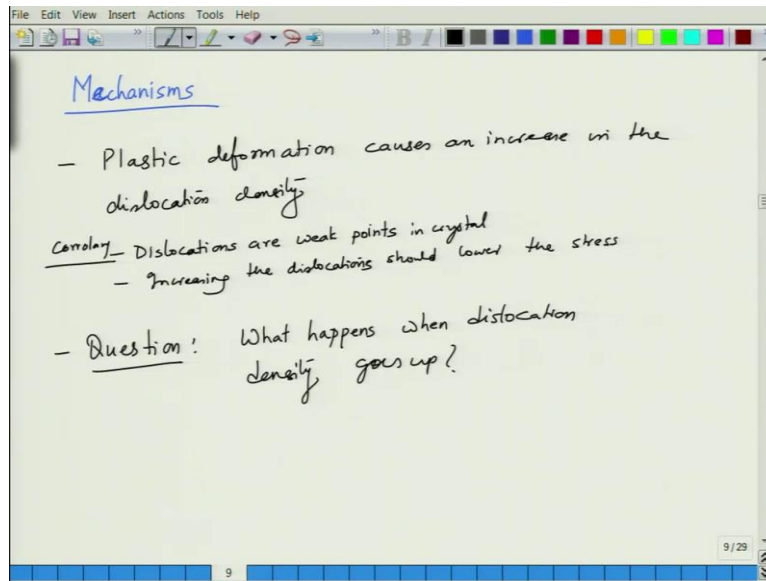 File Edit View Insert Actions Tools Help
Mechanisms
- Plastic deformation causes an increase in the
dislocation density
Corrolary - Dislocations are weak points in crystal
- Increasing the dislocations should lower the stress
- Question: What happens when dislocation
density goes up?
9/29
9